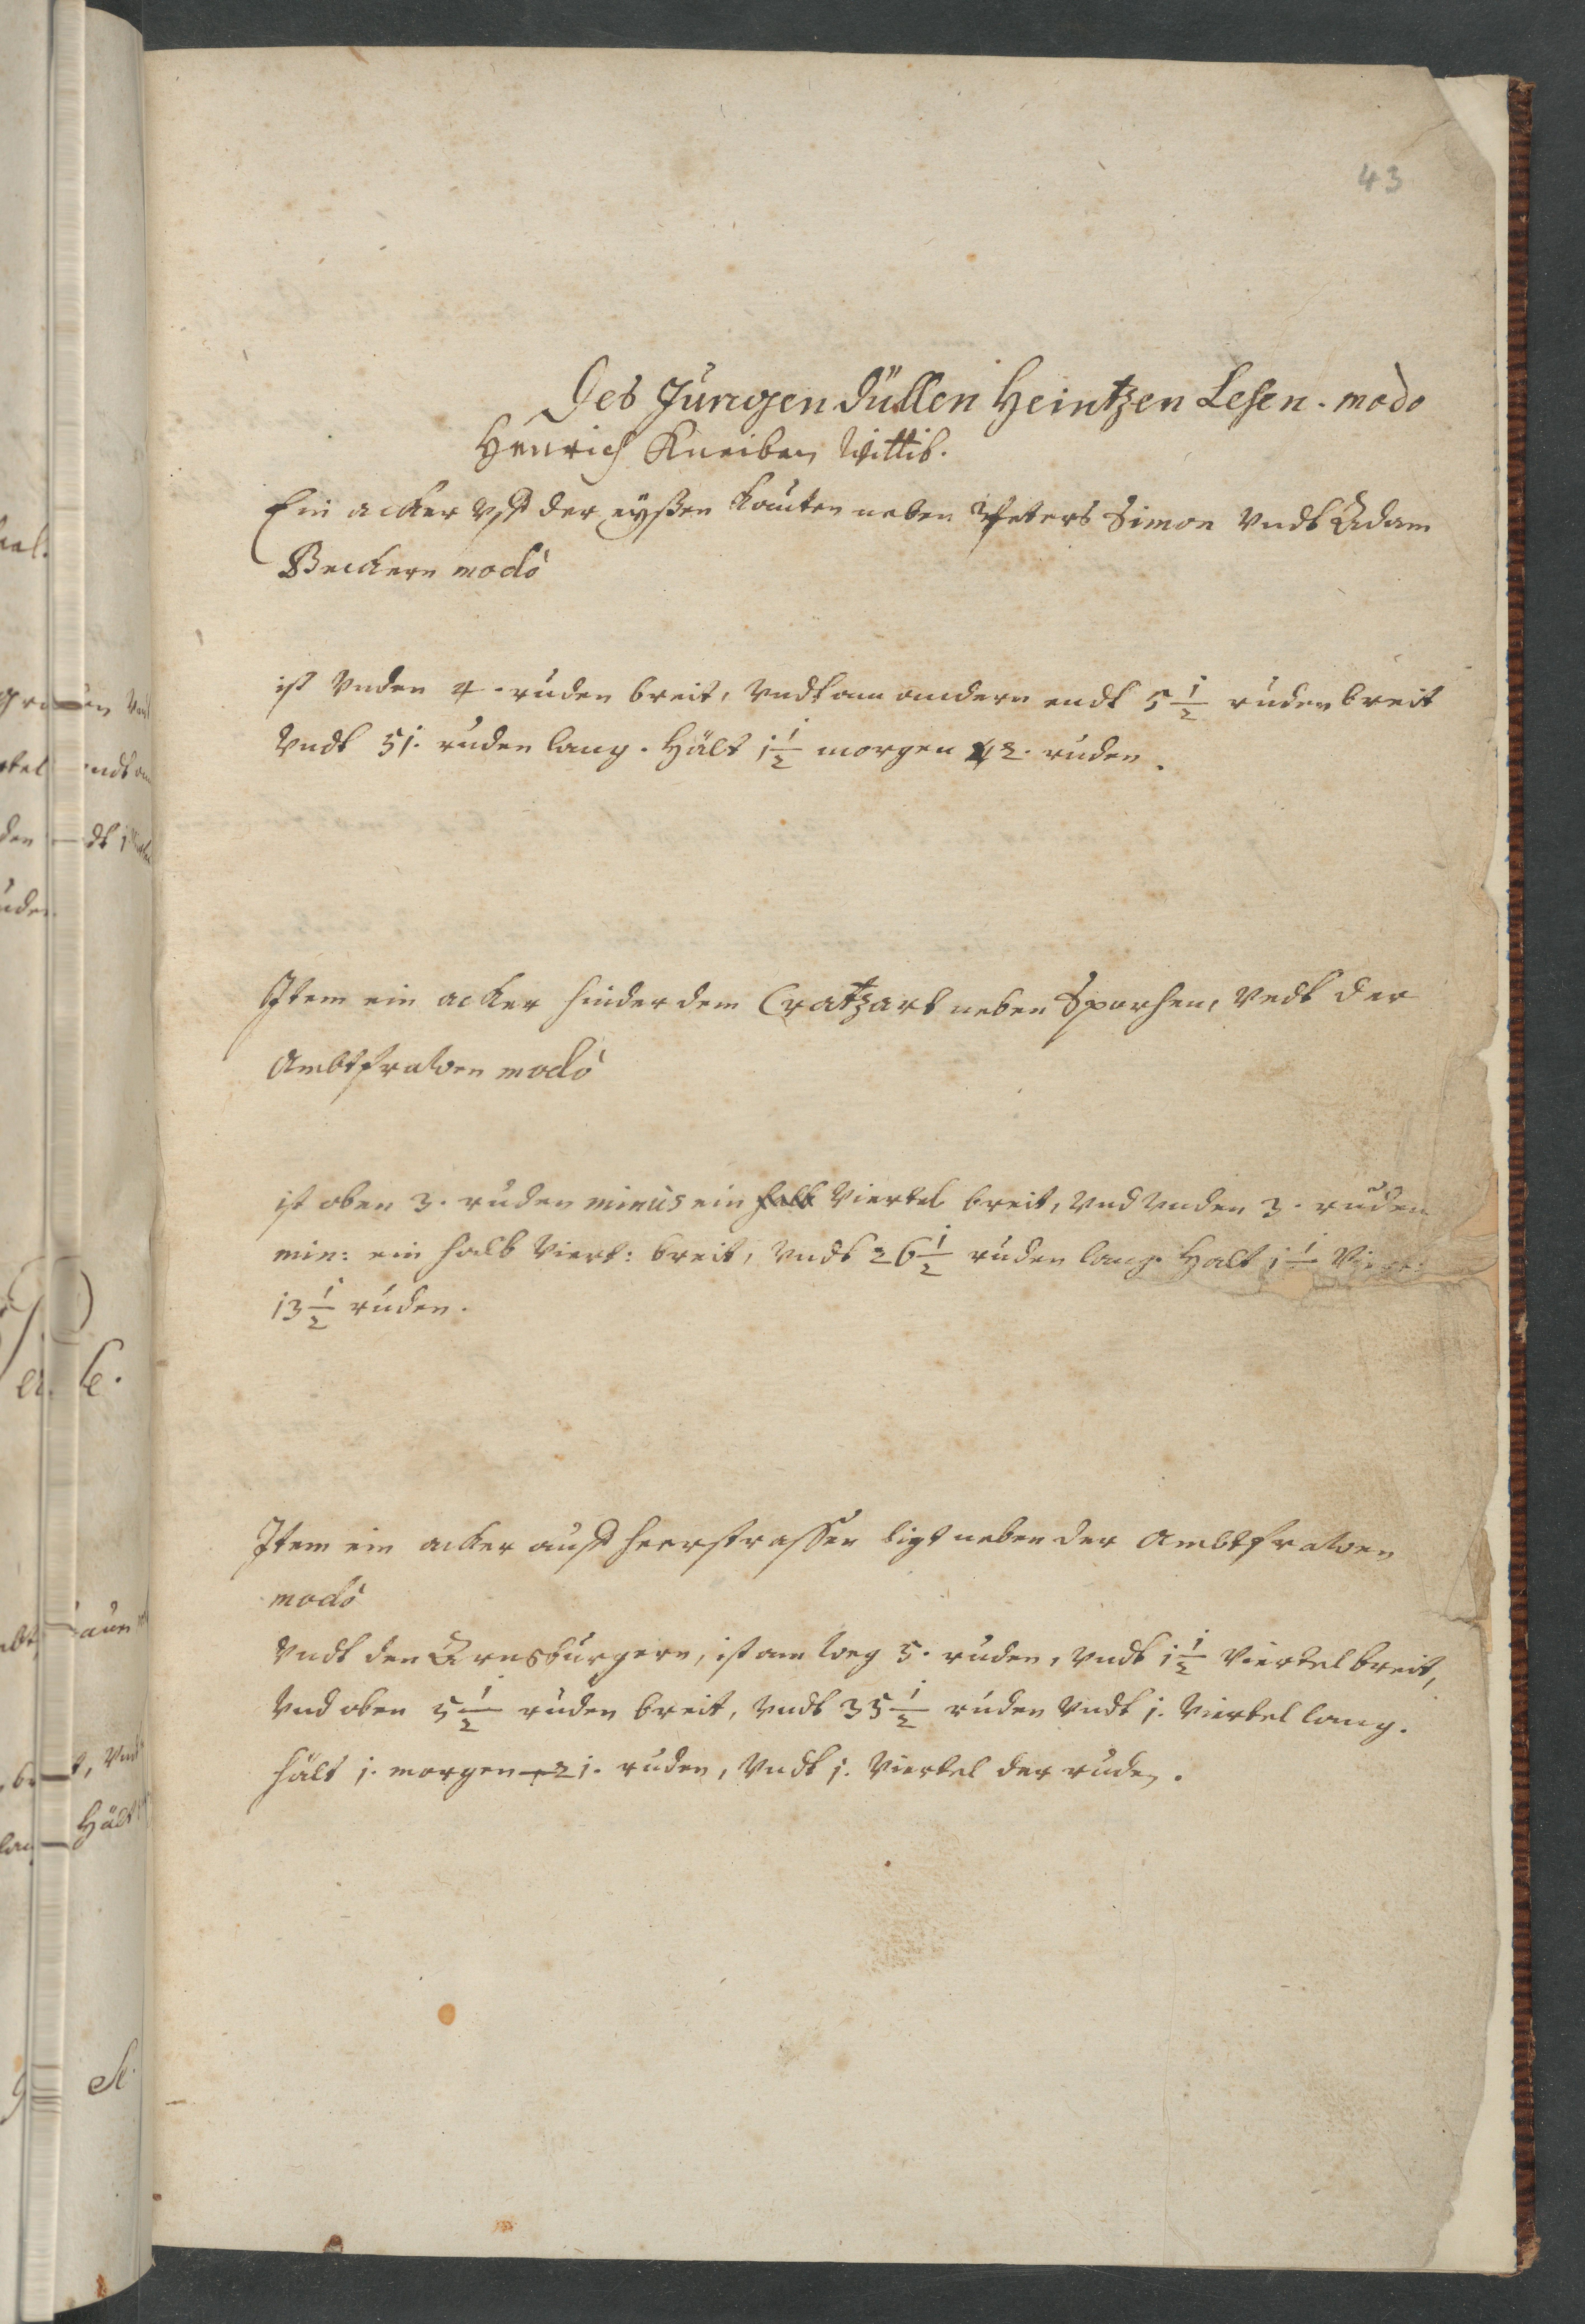 43
Des Jungen Düllen Heintzen Lehen. modo
Henrich Kneiben Wittib.
Ein acker vff der eyßen kauten neben Peters Simon vndt Adam
Beckern modò
ist vnden 4. ruden breit, vndt am andern endt 5 1/2 ruden breit
vndt 51. ruden lang. Hält 1 1/2 morgen 2. ruden.
Item ein acker hinder dem Cratzart neben Sporhen, vndt der
Ambtfrawen modò
ist oben 3. ruden minus ein halb Viertel breit, vnd vnden 3. ruden
min: ein halb Viert: breit, vndt 26 1/2 ruden lang. Halt 1 1/ Viert:
13 1/2 ruden.
Item ein acker auff Heerstrassen ligt neben der Ambtfrawen
modò
vndt den Arnsburgern, ist am weg 5. ruden, vndt 1 1/2 Viertel breit,
vnd oben 5 1/2 ruden breit, vndt 35 1/2 ruden vndt 1. Viertel lang.
hält 1. morgen 21. ruden, vndt 1. Viertel der ruden.